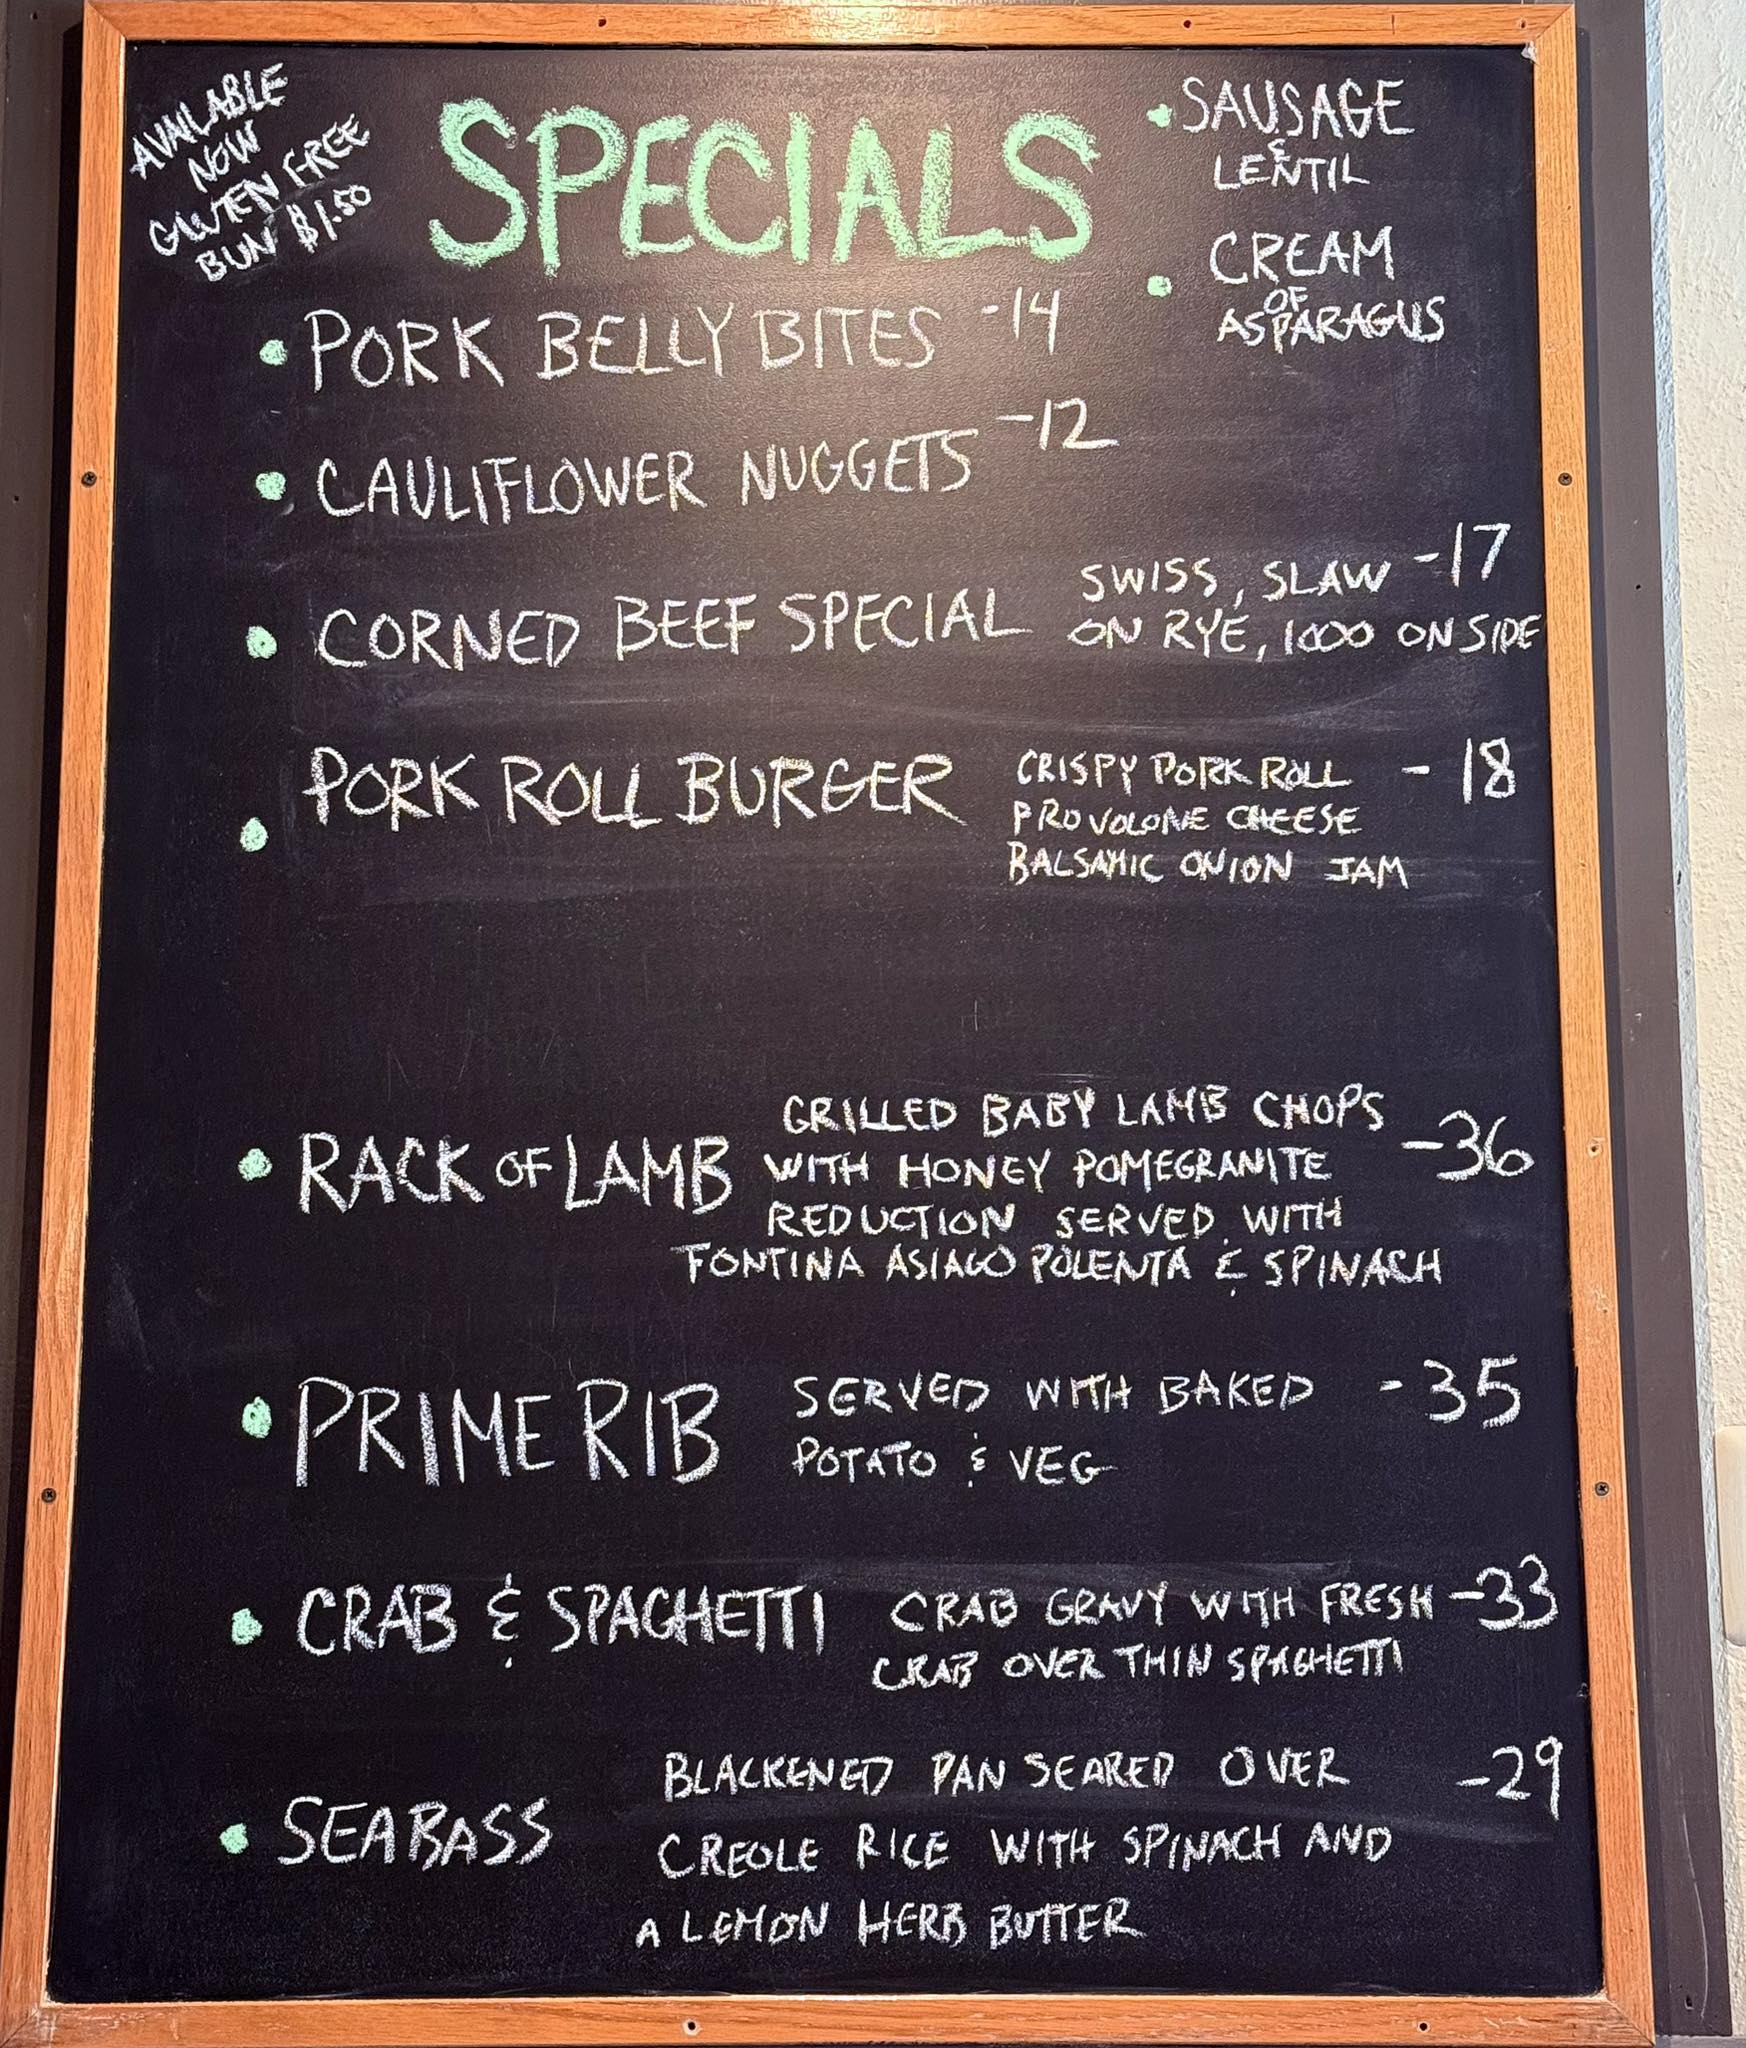 AVAILABLE
NOW
GLUTEN FREE
BUN $1.50
SPECIALS
SAUSAGE
&
LENTIL
CREAM
OF
ASPARAGUS
PORK BELLY BITES -14
CAULIFLOWER NUGGETS -12
CORNED BEEF SPECIAL
SWISS, SLAW -17
ON RYE, 1000 ON SIDE
PORK ROLL BURGER
CRISPY PORK ROLL - 18
PROVOLONE CHEESE
BALSAMIC ONION JAM
RACK OF LAMB
GRILLED BABY LAMB CHOPS -36
WITH HONEY POMEGRANITE
REDUCTION SERVED WITH
FONTINA ASIAGO POLENTA & SPINACH
PRIME RIB
SERVED WITH BAKED -35
POTATO & VEG
CRAB & SPAGHETTI
CRAB GRAVY WITH FRESH -33
CRAB OVER THIN SPAGHETTI
SEABASS
BLACKENED PAN SEARED OVER -29
CREOLE RICE WITH SPINACH AND
A LEMON HERB BUTTER